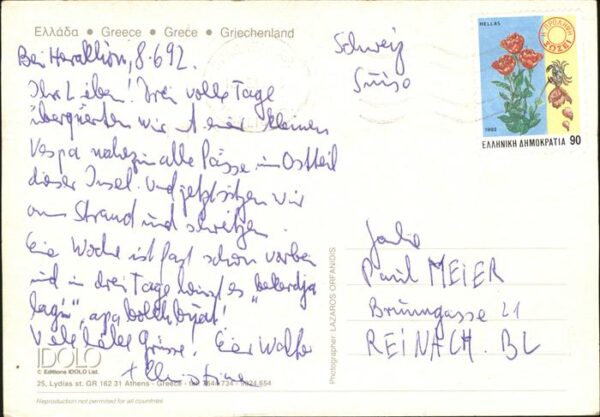 Ελλάδα • Greece • Grèce • Griechenland
Bei Heraklion, 8.6.92.
Ihr Lieben! Drei volle Tage
überquerten wir mit einer kleinen
Vespa nahezu alle Pässe im Ostteil
dieser Insel. und jetzt sitzen wir
am Strand und schwitzen.
Eine Woche ist fast schon vorbei
und in drei Tagen heisst es
Viele liebe Grüsse! Eure Walter
+ Christine
IDOLO
© Editions IDOLO Ltd.
25, Lydias st. GR 162 31 Athens - Greece - tel. 7644.734 -
Reproduction not permitted for all countries
Photographer: LAZAROS ORFANIDIS
Schweiz
Suiso
HELLAS
1992
ΕΛΛΗΝΙΚΗ ΔΗΜΟΚΡΑΤΙΑ 90
Η ΠΡΟΛΗΨΗ
ΣΩΖΕΙ
Paul MEIER
Brunngasse 21
REINACH. BL